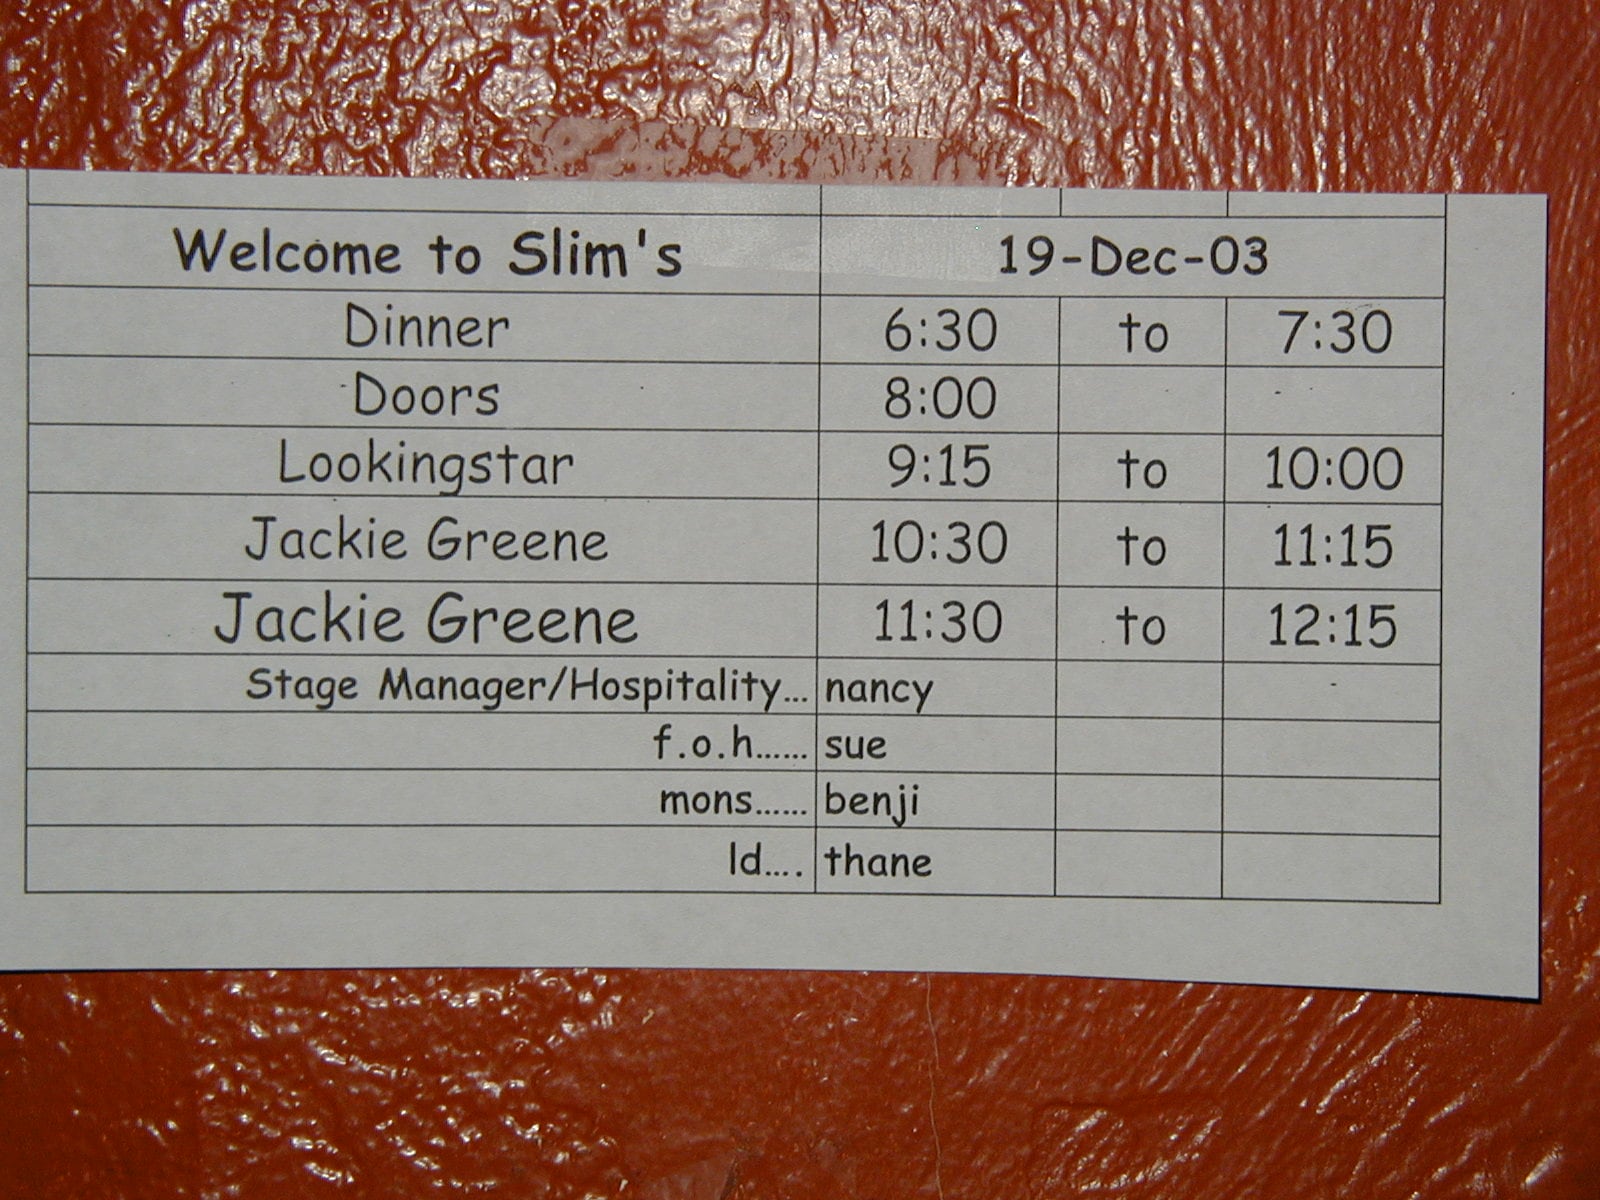 Welcome to Slim's 19-Dec-03
Dinner 6:30 to 7:30
Doors 8:00
Lookingstar 9:15 to 10:00
Jackie Greene 10:30 to 11:15
Jackie Greene 11:30 to 12:15
Stage Manager/Hospitality... nancy
f.o.h...... sue
mons...... benji
ld.... thane